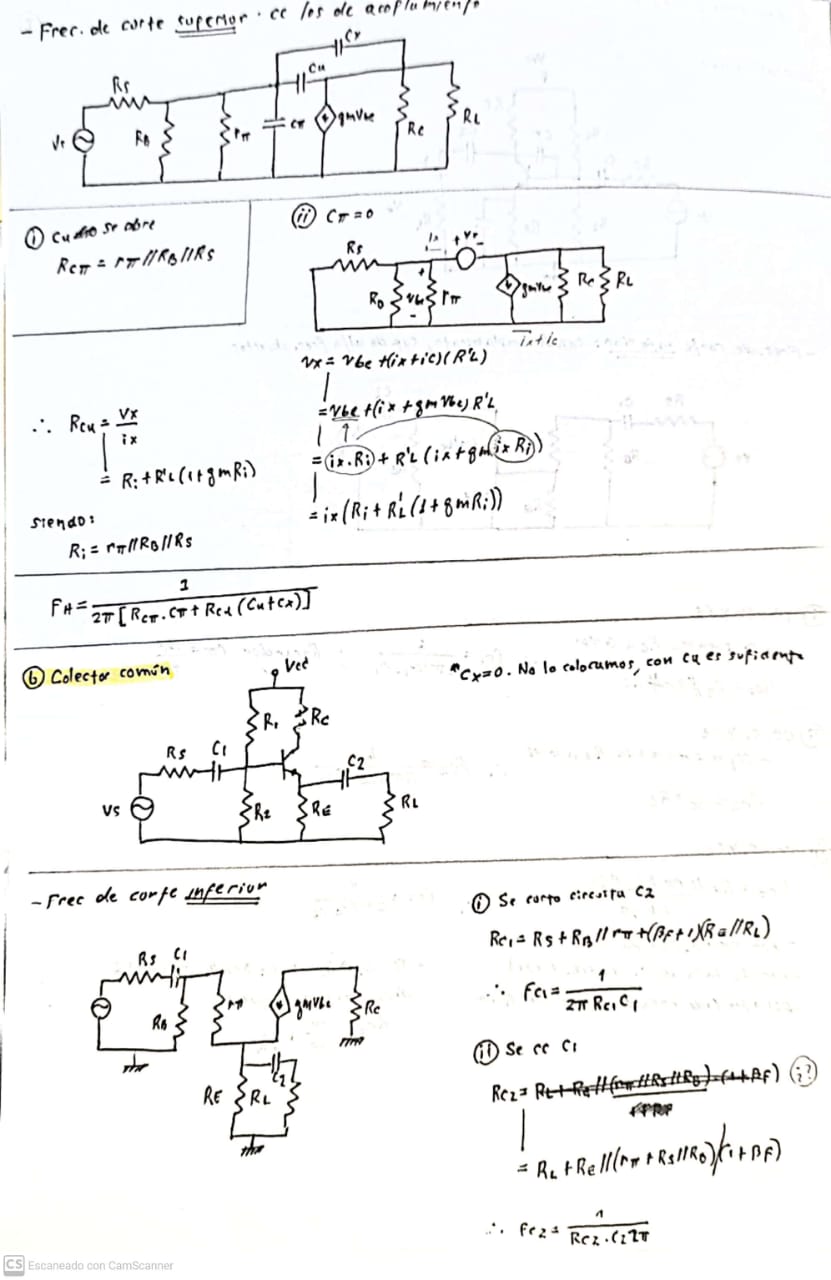 - Frec. de corte superior. cc los de acoplamiento
Cx
Cu
Rs
Vs
RB
rπ
cπ
gmVbe
Rc
RL
(i) Cu dto se abre
Rcπ = rπ//RB//Rs
(ii) Cπ=0
Rs
ix
+ Vx -
RB
+
Vbe
-
rπ
gmVbe
Rc
RL
ix+ic
Vx = Vbe +(ix+ic)(R'L)
= Vbe +(ix + gmVbe) R'L
= (ix.Ri) + R'L (ix+gm(ix Ri))
= ix(Ri + R'L (1+gmRi))
∴ Rcu = Vx/ix
= Ri+R'L(1+gmRi)
siendo:
Ri = rπ//RB//Rs
FH = 1/2π[Rcπ.Cπ + Rcu(Cu+Cx)]
(b) Colector común
*Cx=0. No lo colocamos, con Cu es suficiente
Vcc
R1
Rc
Rs
C1
C2
Vs
R2
RE
RL
- Frec de corte inferior
Rs
C1
RB
rπ
gmVbe
Rc
C2
RE
RL
(i) Se corto circuita C2
RC1 = Rs + RB//rπ+(βF+1)(RE//RL)
∴ FC1 = 1/2π RC1 C1
(ii) Se cc C1
RC2 = RL + RE//(rπ//Rs//RB).(1+βF) (¿?)
= RL + RE//(rπ + Rs//RB)/(1+βF)
∴ FC2 = 1/RC2.C2 2π
CS Escaneado con CamScanner